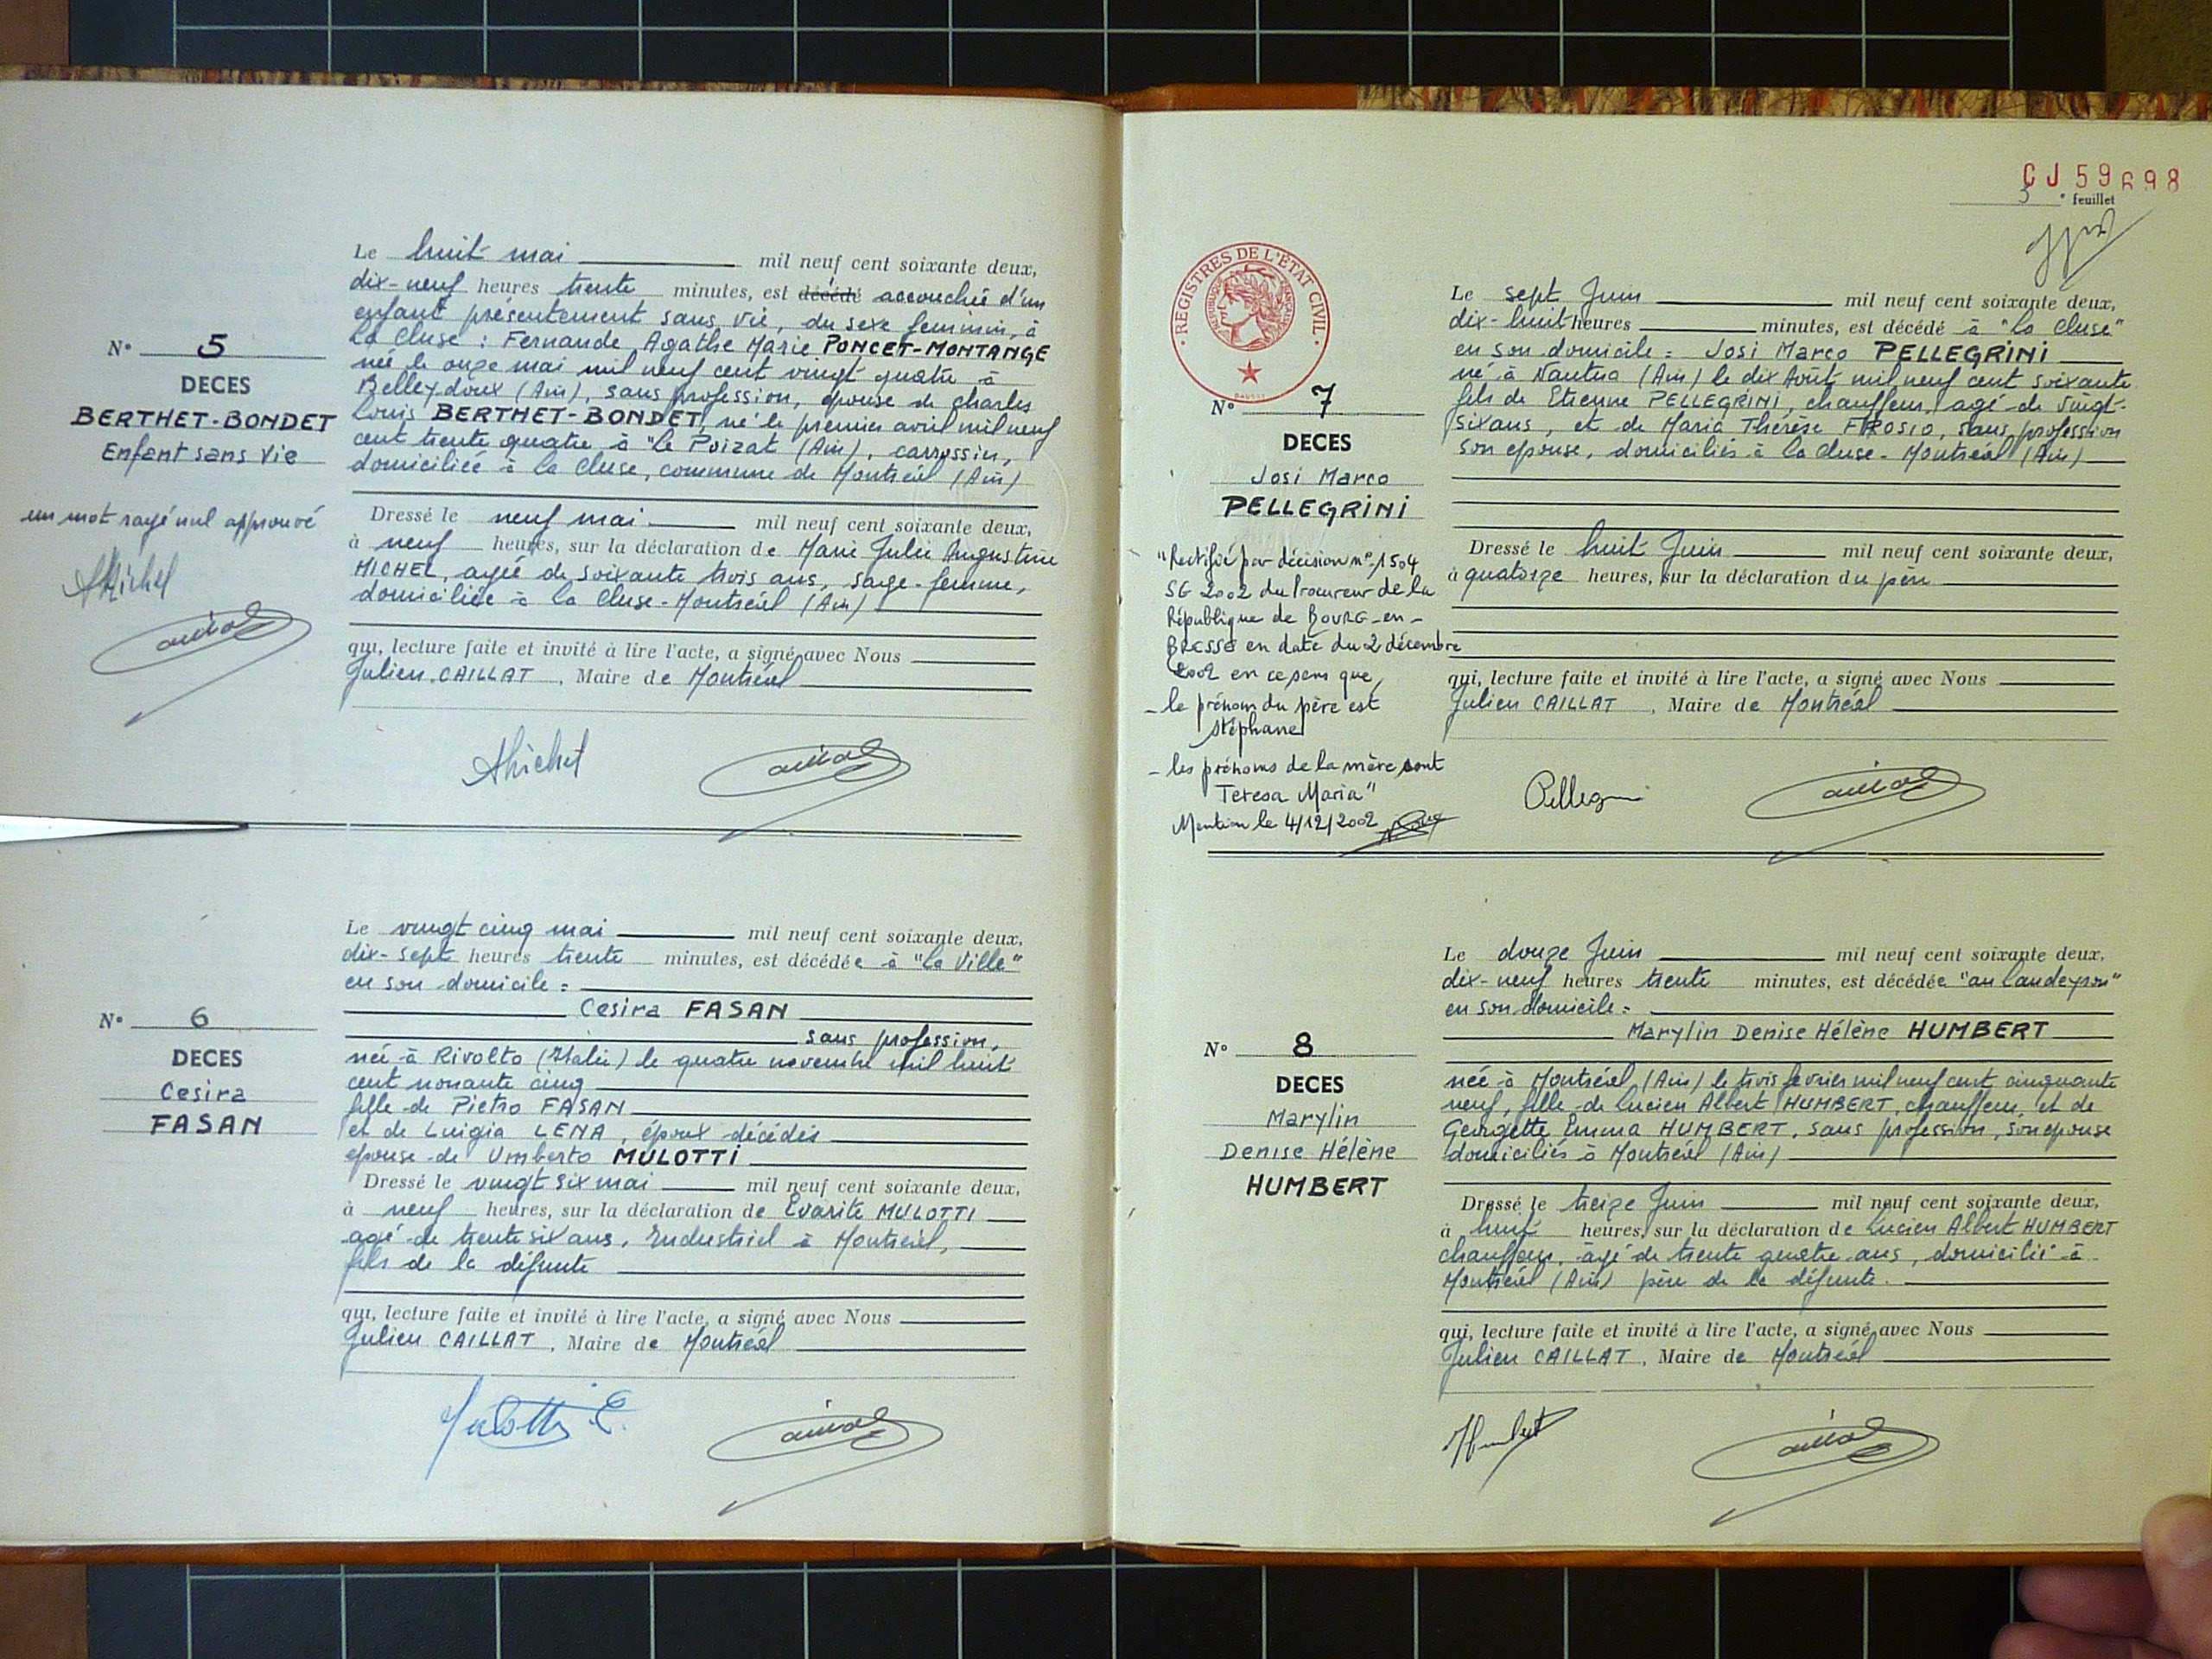 Le huit mai mil neuf cent soixante deux,
dix-neuf heures trente minutes, est décédé accouchée d'un
enfant présentement sans vie, du sexe féminin, à
La Cluse : Fernande Agathe Marie PONCET-MONTANGE
née le onze mai mil neuf cent vingt quatre à
Belleydoux (Ain), sans profession, épouse de Charles
Louis BERTHET-BONDET, né le premier avril mil neuf
cent trente quatre à "Le Poizat (Ain), carrossier,
domiciliée à La Cluse, commune de Montréal (Ain)
N° 5
DECES
BERTHET-BONDET
Enfant sans vie
un mot rayé nul approuvé
AMichel
Dressé le neuf mai mil neuf cent soixante deux,
à neuf heures, sur la déclaration de Marie Julie Augustine
MICHEL, agée de soixante trois ans, sage-femme,
domiciliée à La Cluse-Montréal (Ain)
qui, lecture faite et invité à lire l'acte, a signé avec Nous
Julien CAILLAT, Maire de Montréal
AMichel
Le vingt cinq mai mil neuf cent soixante deux,
dix-sept heures trente minutes, est décédée à "La Ville"
en son domicile :
Cesira FASAN
sans profession,
née à Rivolto (Italie) le quatre novembre mil huit
cent nonante cinq
fille de Pietro FASAN
et de Luigia LENA, époux décédés
épouse de Umberto MULOTTI
N° 6
DECES
Cesira
FASAN
Dressé le vingt six mai mil neuf cent soixante deux,
à neuf heures, sur la déclaration de Evarite MULOTTI
agé de trente six ans, Industriel à Montréal,
fils de la défunte
qui, lecture faite et invité à lire l'acte, a signé avec Nous
Julien CAILLAT, Maire de Montréal
Mulotti E.
CJ 59698
3e feuillet
REGISTRES DE L'ÉTAT CIVIL
Le sept Juin mil neuf cent soixante deux,
dix-huit heures minutes, est décédé à "La Cluse"
en son domicile : Josi Marco PELLEGRINI
né à Nantua (Ain) le dix Août mil neuf cent soixante
fils de Etienne PELLEGRINI, chauffeur, agé de vingt-
six ans, et de Maria Thérèse FROSIO, sans profession
son épouse, domiciliés à La Cluse-Montréal (Ain)
N° 7
DECES
Josi Marco
PELLEGRINI
"Rectifié par décision n° 1504
SG 2002 du Procureur de la
République de BOURG-en-
BRESSE en date du 2 décembre
2002 en ce sens que,
- le prénom du père est
Stéphane
- les prénoms de la mère sont
Teresa Maria"
Mention le 4/12/2002
Dressé le huit Juin mil neuf cent soixante deux,
à quatorze heures, sur la déclaration du père
qui, lecture faite et invité à lire l'acte, a signé avec Nous
Julien CAILLAT, Maire de Montréal
Pellegrini
Le douze Juin mil neuf cent soixante deux,
dix-neuf heures trente minutes, est décédée "au Landeyron"
en son domicile :
Marylin Denise Hélène HUMBERT
née à Montréal (Ain) le trois février mil neuf cent cinquante
neuf, fille de Lucien Albert HUMBERT, chauffeur, et de
Georgette Emma HUMBERT, sans profession, son épouse
domiciliés à Montréal (Ain)
N° 8
DECES
Marylin
Denise Hélène
HUMBERT
Dressé le treize Juin mil neuf cent soixante deux,
à heures, sur la déclaration de Lucien Albert HUMBERT
chauffeur, âgé de trente quatre ans, domicilié à
Montréal (Ain) père de la défunte.
qui, lecture faite et invité à lire l'acte, a signé avec Nous
Julien CAILLAT, Maire de Montréal
Humbert